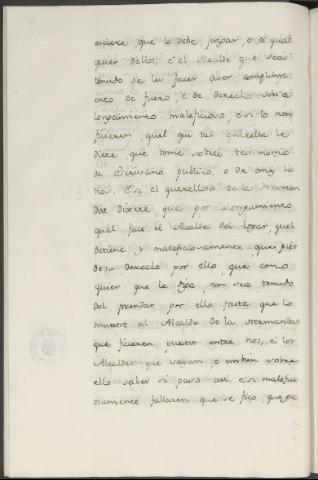 oviere, que lo debe juzgar, o a qual
quier dellos, e el Alcalde que sea
tenudo de les facer aver complimi
ento de fuero, e de derecho sin a
longamiento malicioso, e si lo non
ficieren, quel qui tal querella le
diere que tome sobrel testimonio
de Escrivano publico, o de omes bu
nos. E si el querelloso de la Herman
dat dixere, que por alongamiento
qual face el Alcalde del logar, quel
detiene y maliciosamente que pier
de su derecho por ello, que como
quier que lo diga, non sea tenudo
del prendar por ello, fasta que lo
muestre al Alcalde de la Hermandat
que fueren puestos entre nos, e los
Alcaldes que vayan o embien sobre
ello saber si pasa asi, e si malicio
samente fallaren que se fizo, que pe